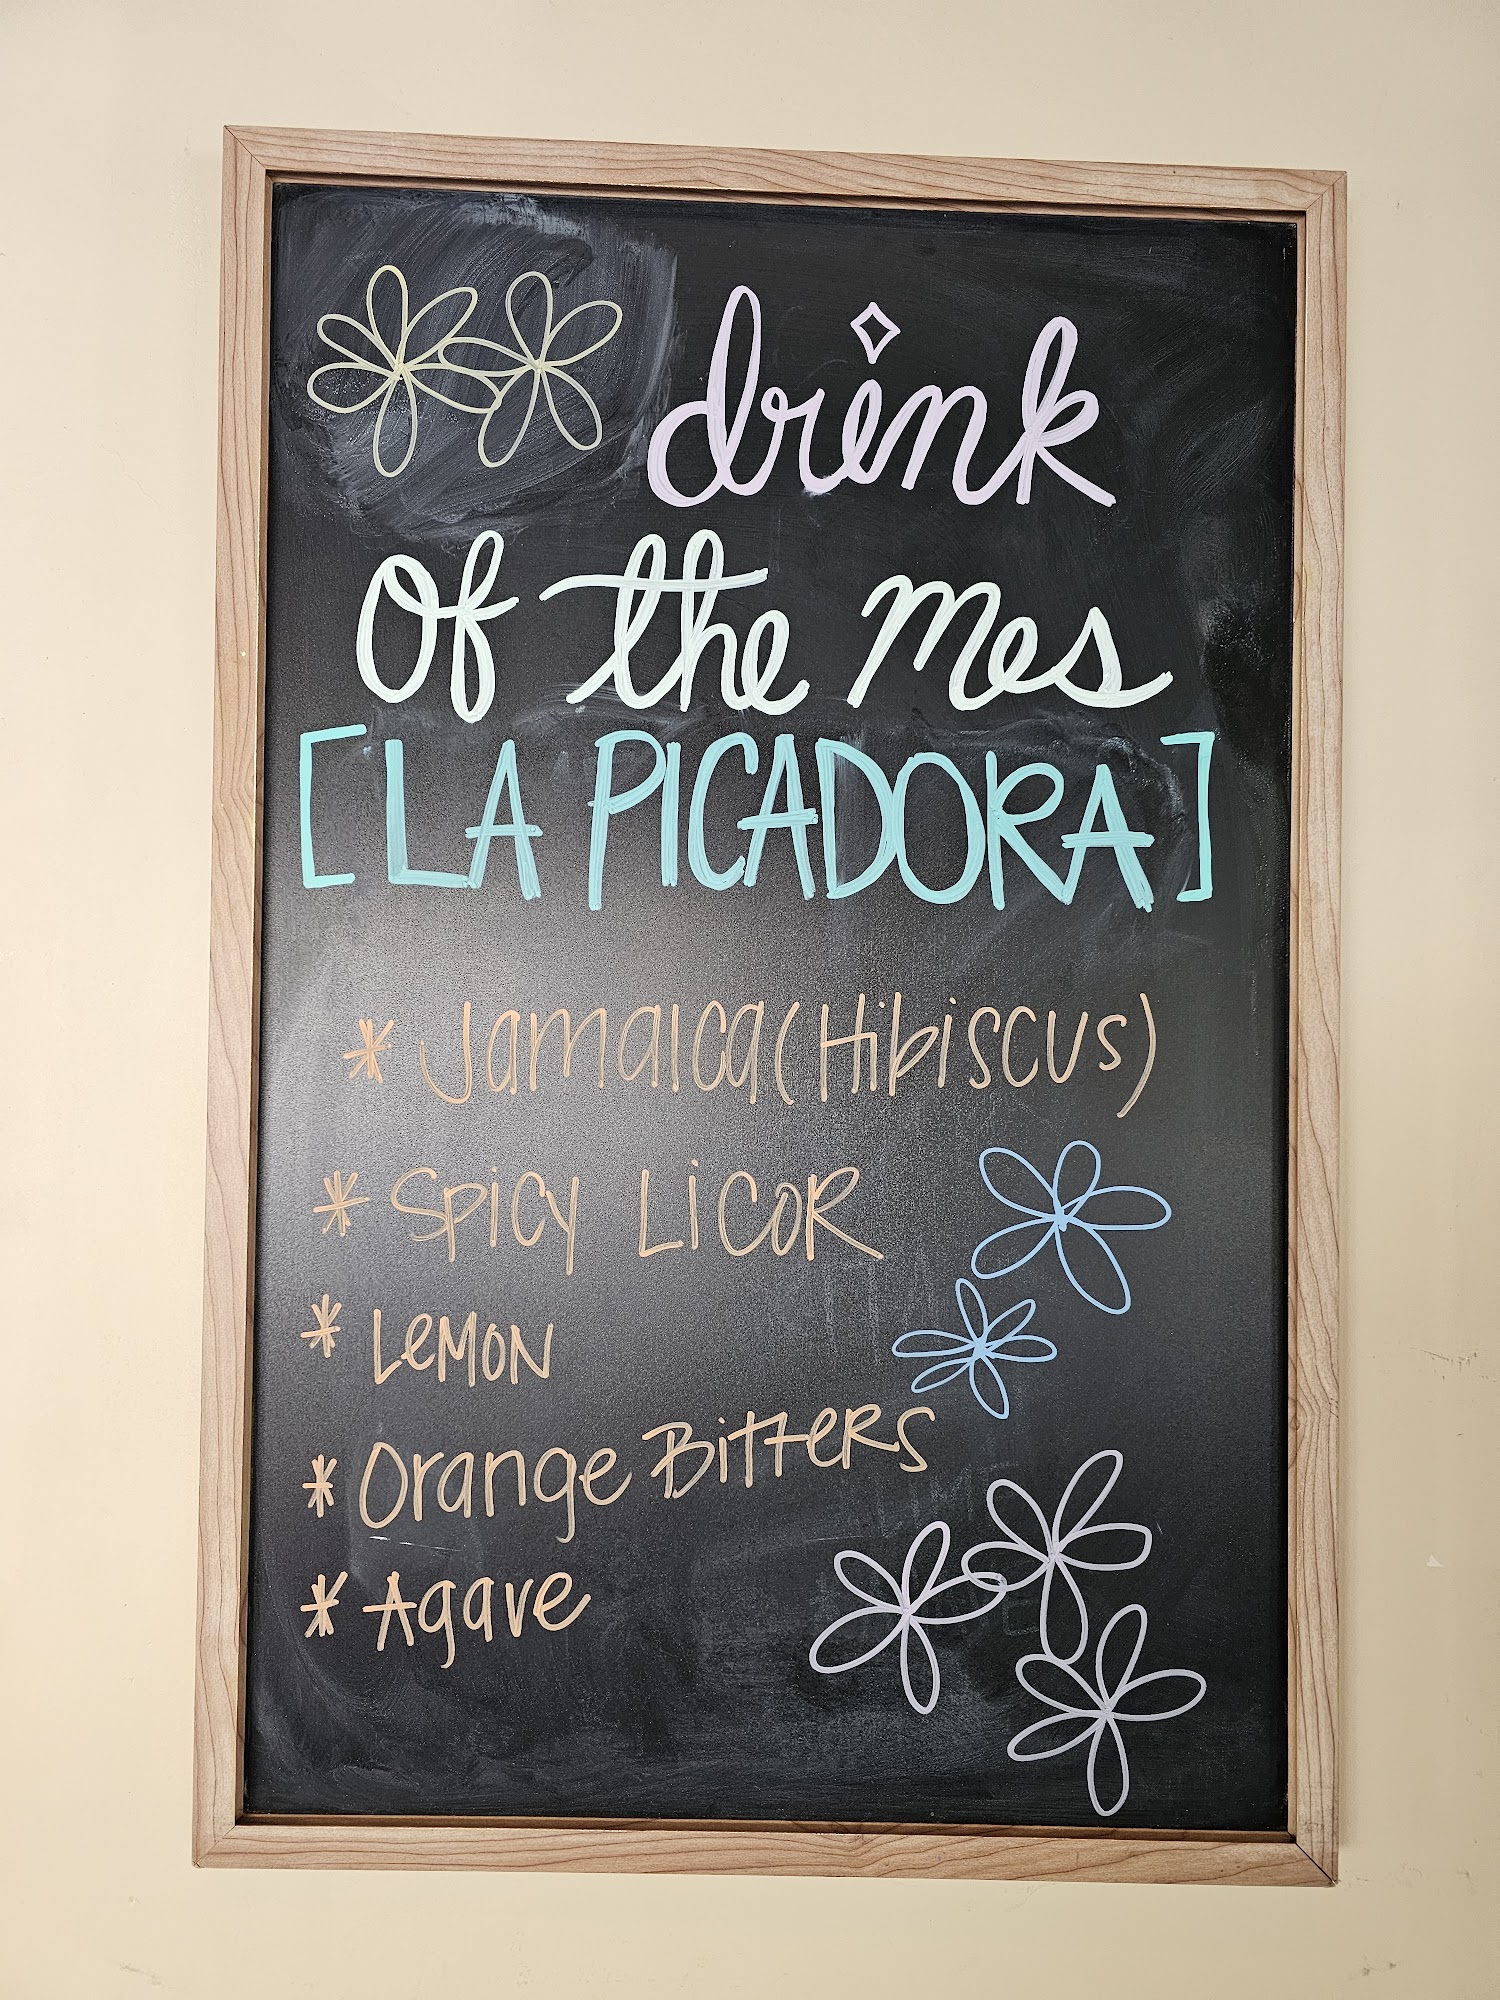 drink
of the mes
[LA PICADORA]
* Jamaica (Hibiscus)
* Spicy LiCOR
* Lemon
* Orange Bitters
* Agave